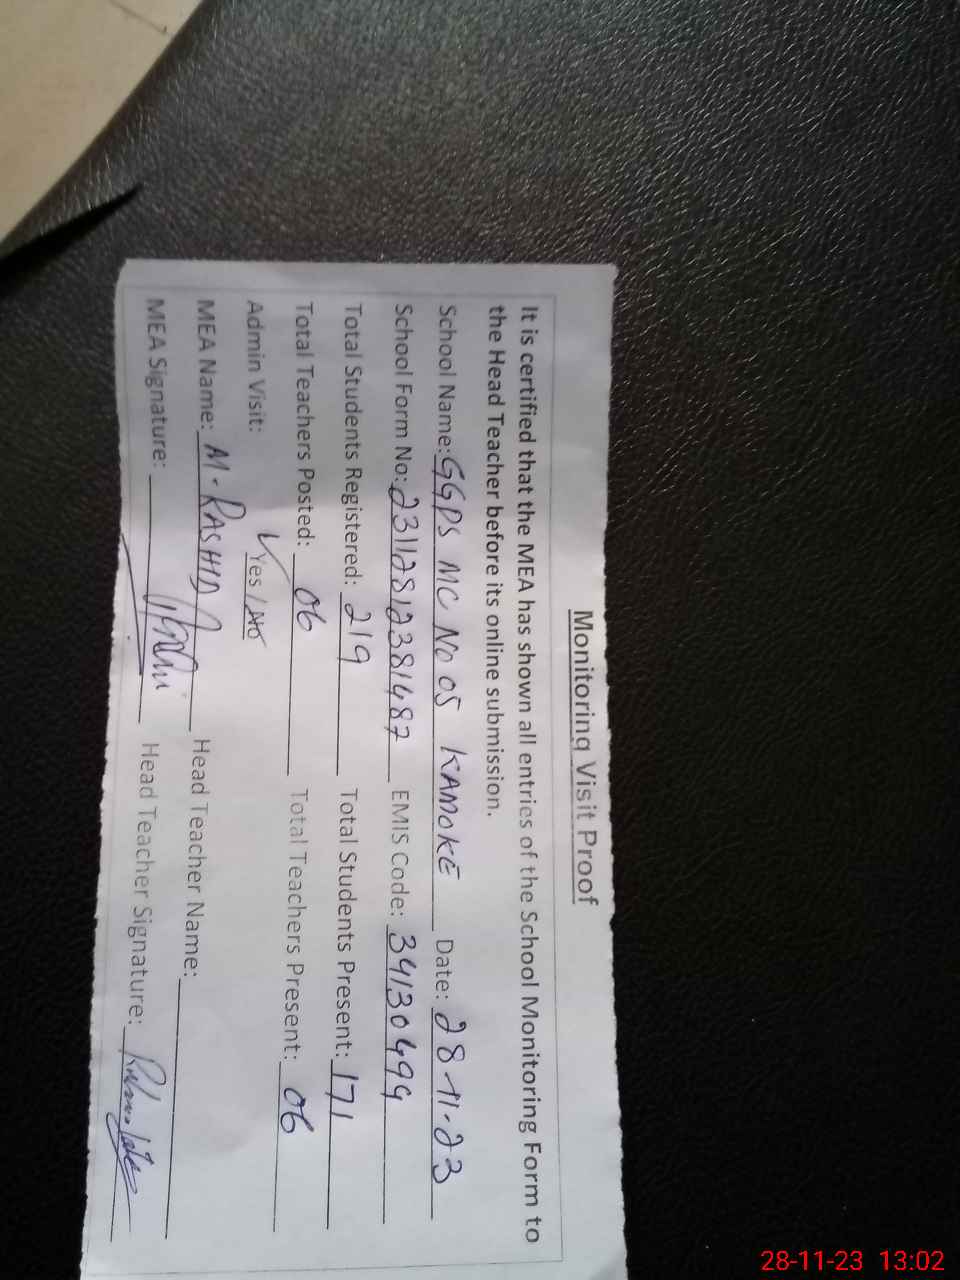 Monitoring Visit Proof
It is certified that the MEA has shown all entries of the School Monitoring Form to
the Head Teacher before its online submission.
School Name: GGPS MC NO 05 KAMOKE Date: 28-11-23
School Form No: 23112812381487 EMIS Code: 34130499
Total Students Registered: 219 Total Students Present: 171
Total Teachers Posted: 06 Total Teachers Present: 06
Admin Visit: Yes / No
MEA Name: M. RASHID Head Teacher Name:
MEA Signature: Head Teacher Signature:
28-11-23 13:02